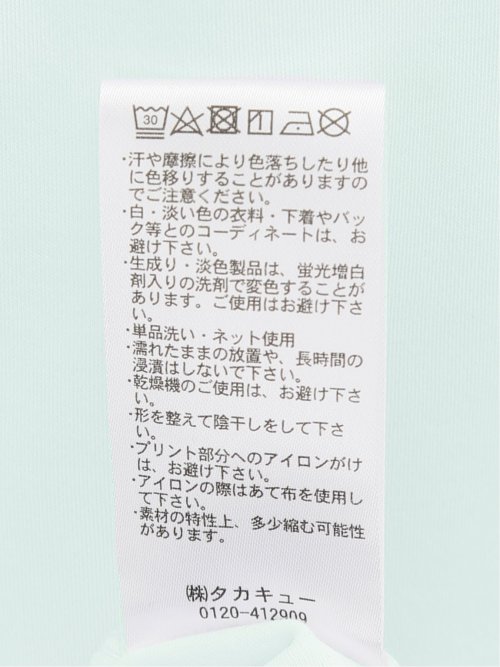 30
・汗や摩擦により色落ちしたり他
に色移りすることがありますの
でご注意ください。
・白・淡い色の衣料・下着やバッ
ク等とのコーディネートは、お
避け下さい。
・生成り・淡色製品は、蛍光増白
剤入りの洗剤で変色することが
あります。ご使用はお避け下さ
い。
・単品洗い・ネット使用
・濡れたままの放置や、長時間の
浸漬はしないで下さい。
・乾燥機のご使用は、お避け下さ
い。
・形を整えて陰干しをして下さ
い。
・プリント部分へのアイロンがけ
は、お避け下さい。
・アイロンの際はあて布を使用し
て下さい。
・素材の特性上、多少縮む可能性
があります。
㈱タカキュー
0120-412909